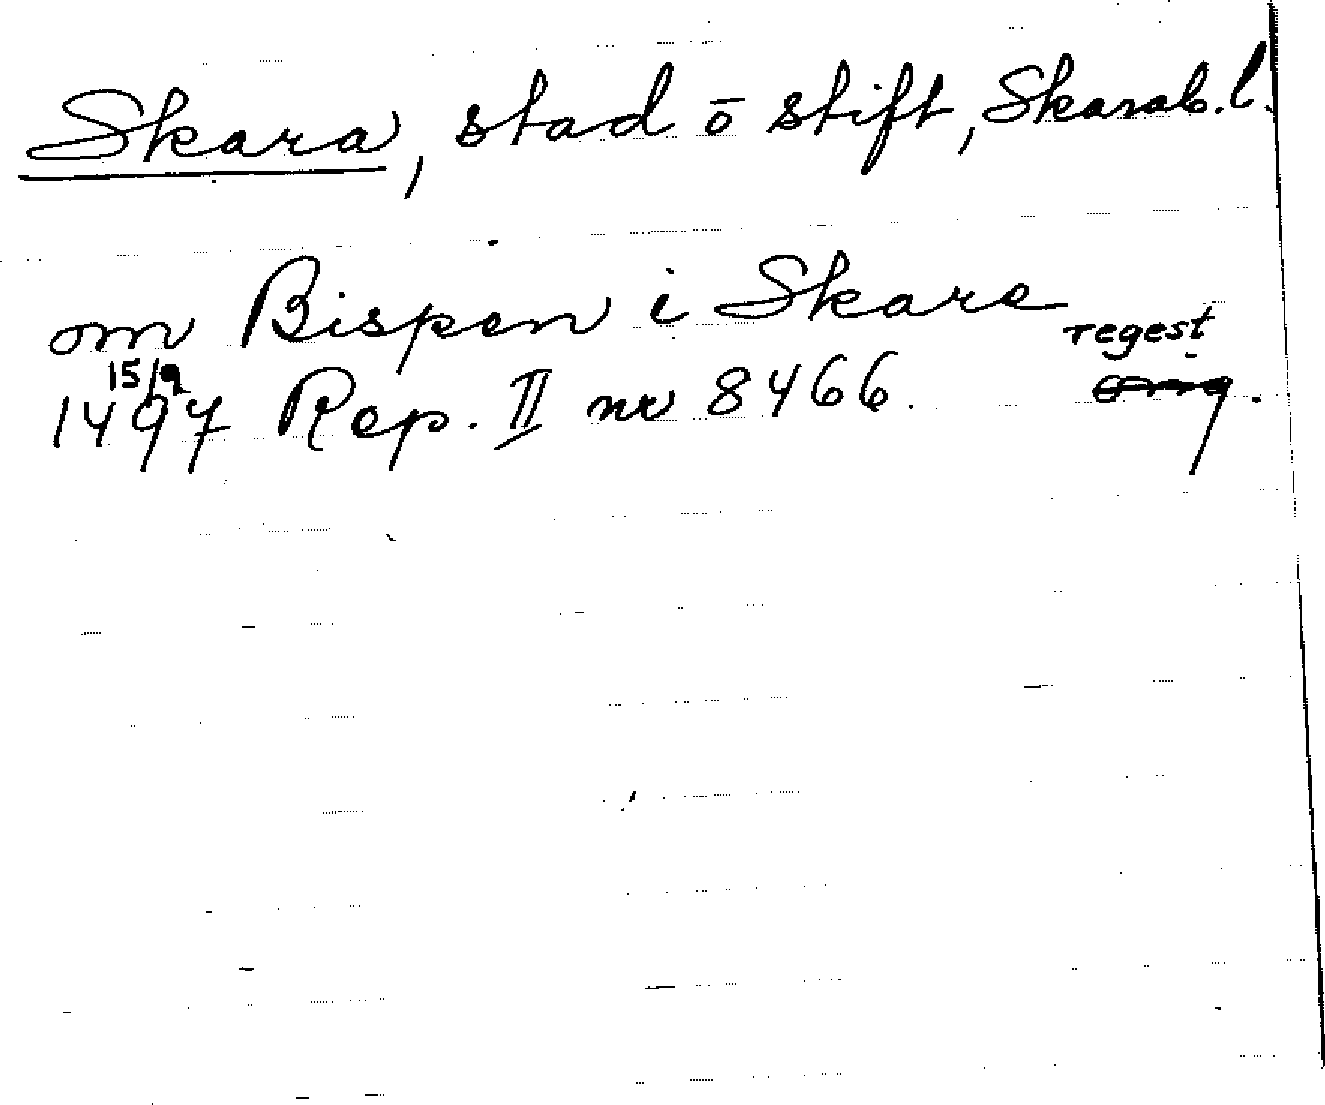 Skara, stad ō stift, Skarab. l.
om Bispen i Skare
regest
15/9
1497 Rep. II nr 8466.